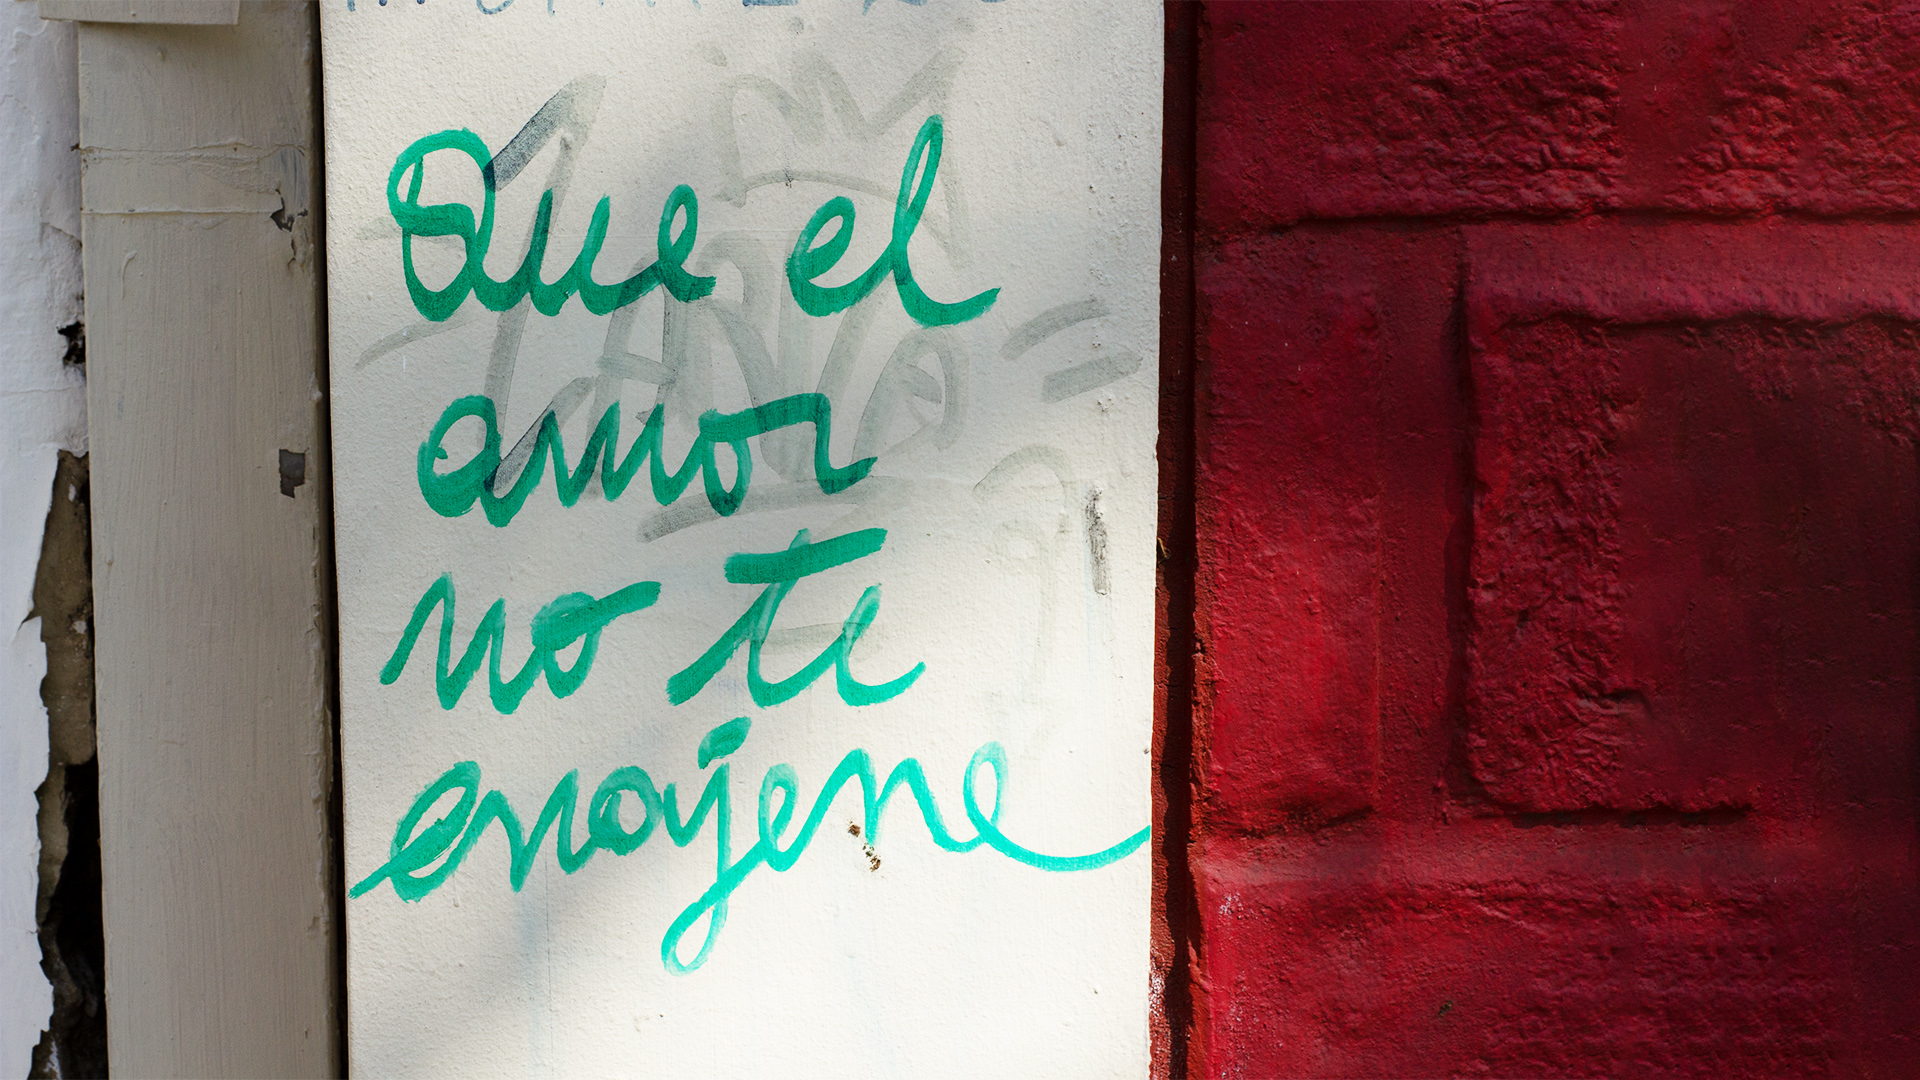 Que el
amor
no te
enajene